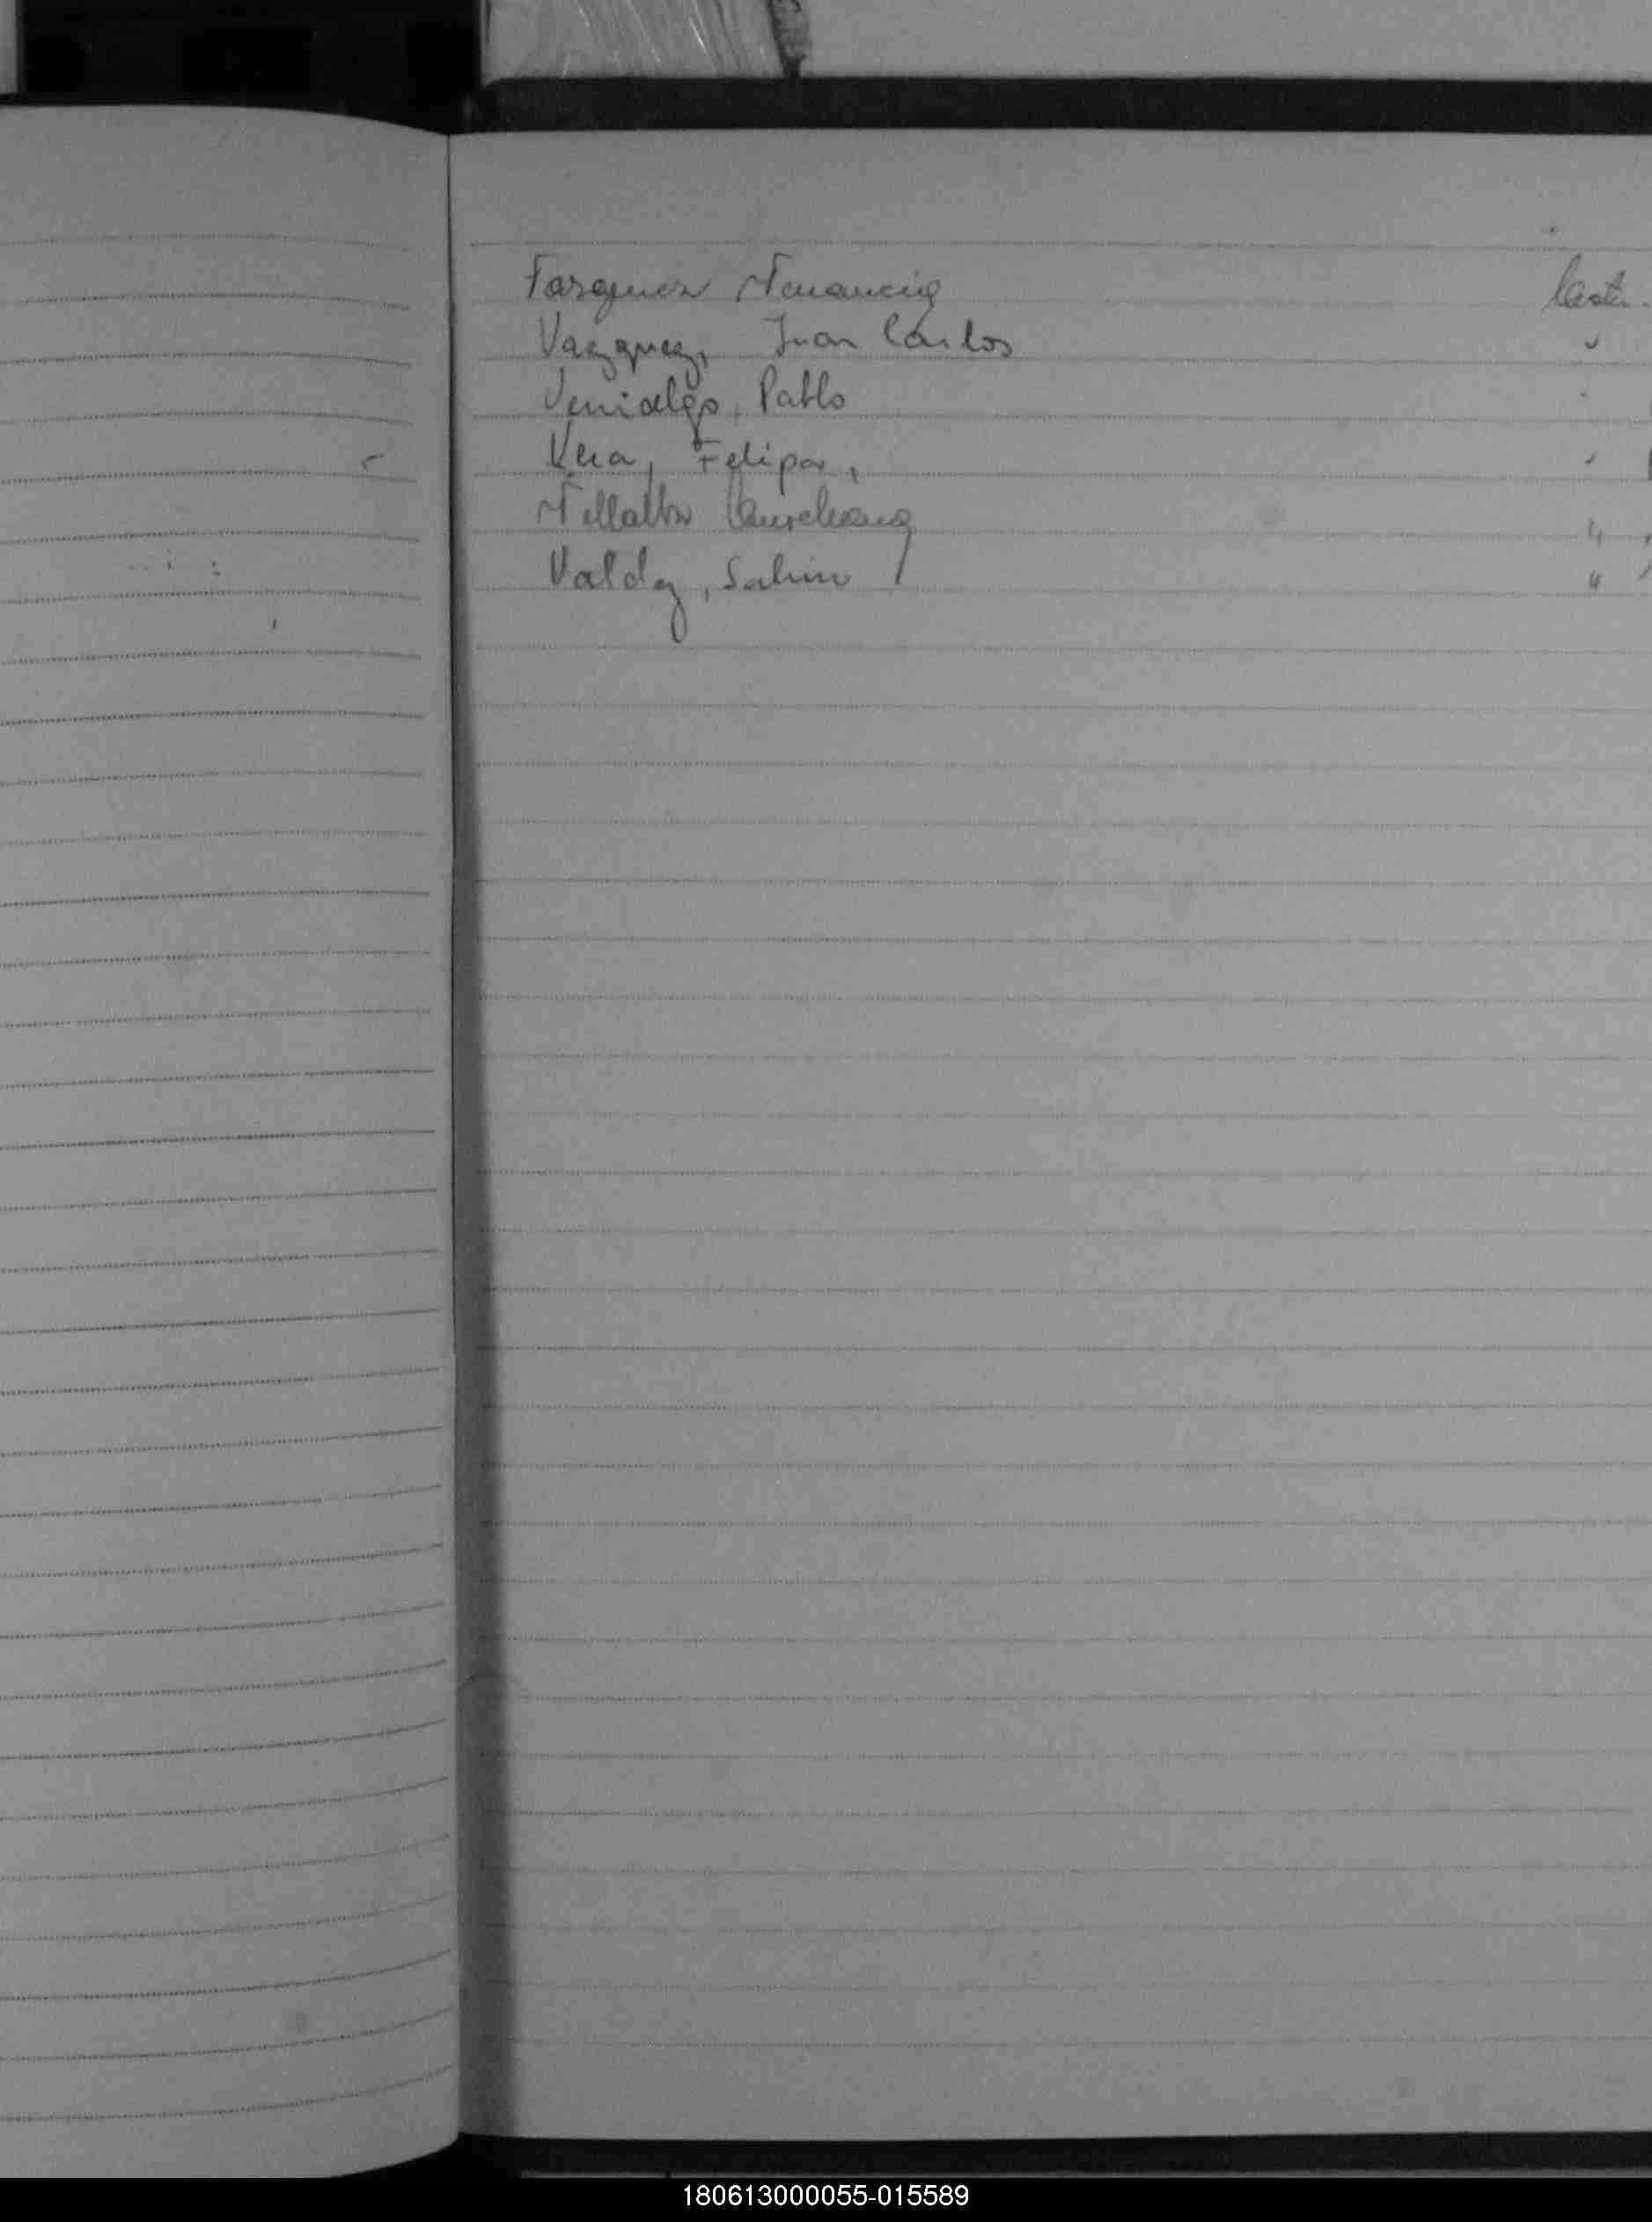 Vasquez Venancia
Vazquez, Juan Carlos
Venialgo, Pablo
Vera, Felipa,
Villalba
Valdez, Sabino
180613000055-015589